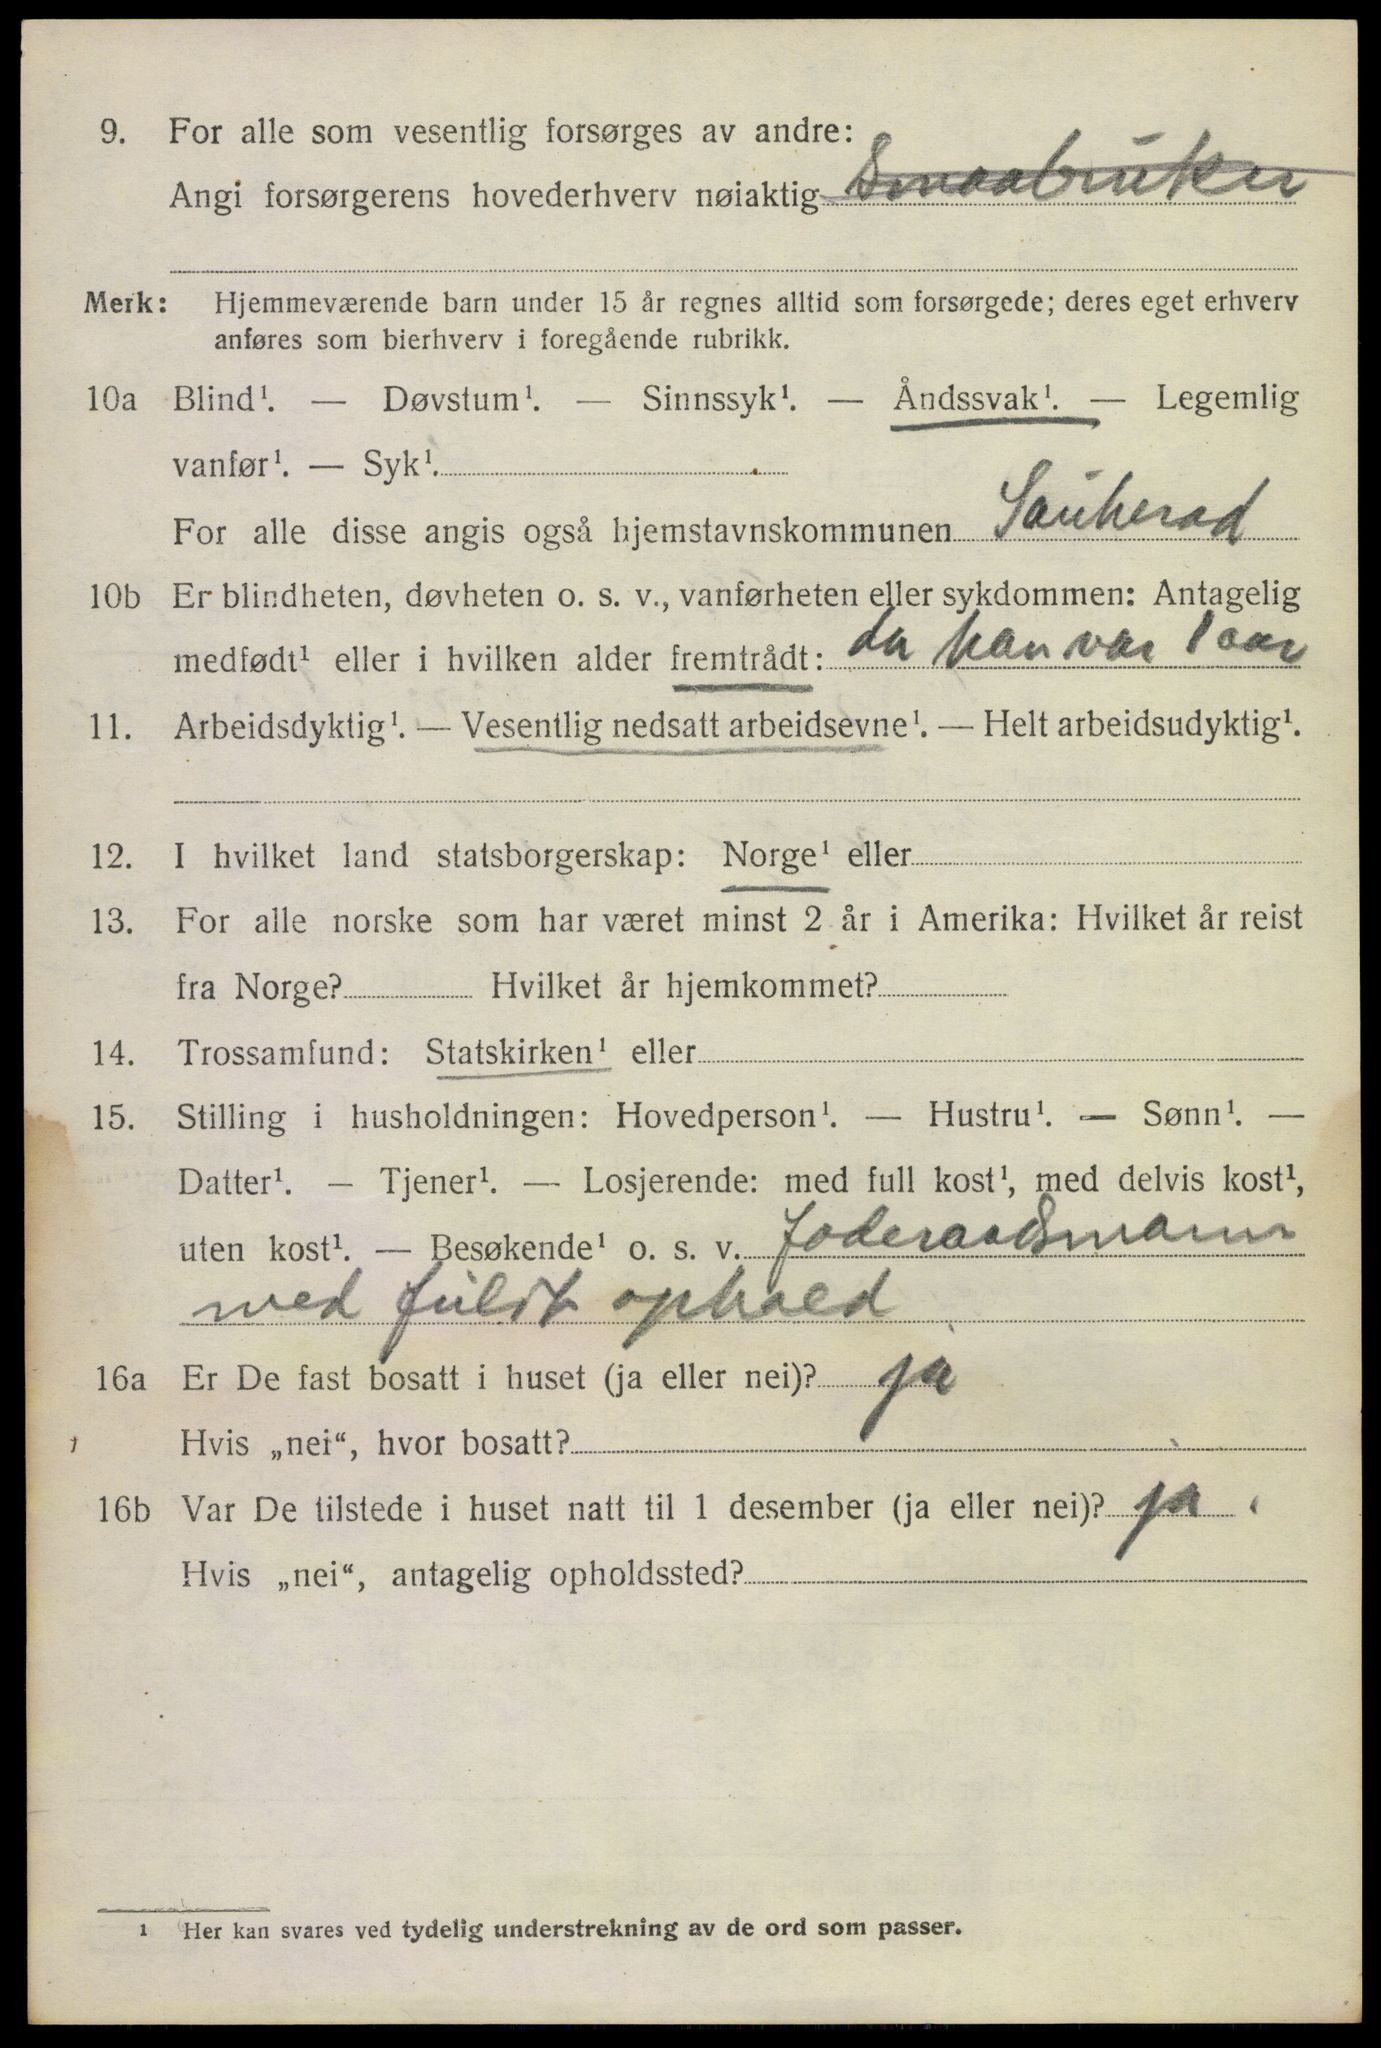 9. For alle som vesentlig forsørges av andre:
Angi forsørgerens hovederhverv nøiaktig Smaabruker
Merk: Hjemmeværende barn under 15 år regnes alltid som forsørgede; deres eget erhverv
anføres som bierhverv i foregående rubrikk.
10a Blind¹. — Døvstum¹. — Sinnssyk¹. — Åndssvak¹. — Legemlig
vanfør¹. — Syk¹.
For alle disse angis også hjemstavnskommunen Sauherad
10b Er blindheten, døvheten o. s. v., vanførheten eller sykdommen: Antagelig
medfødt¹ eller i hvilken alder fremtrådt: da han var 1 aar
11. Arbeidsdyktig¹. — Vesentlig nedsatt arbeidsevne¹. — Helt arbeidsudyktig¹.
12. I hvilket land statsborgerskap: Norge¹ eller
13. For alle norske som har været minst 2 år i Amerika: Hvilket år reist
fra Norge? Hvilket år hjemkommet?
14. Trossamfund: Statskirken¹ eller
15. Stilling i husholdningen: Hovedperson¹. — Hustru¹. — Sønn¹. —
Datter¹. — Tjener¹. — Losjerende: med full kost¹, med delvis kost¹,
uten kost¹. — Besøkende¹ o. s. v. foderaadsmann
med fuldt ophold
16a Er De fast bosatt i huset (ja eller nei)? ja
Hvis „nei“, hvor bosatt?
16b Var De tilstede i huset natt til 1 desember (ja eller nei)? ja
Hvis „nei“, antagelig opholdssted?
¹ Her kan svares ved tydelig understrekning av de ord som passer.